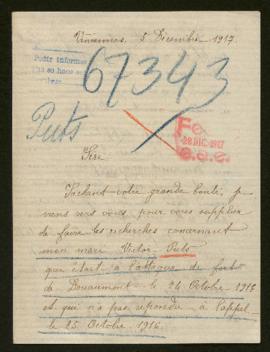 Vincennes, 5 Décembre 1917.
67343
Puts
28 DIC. 1917
Sire
Sachant votre grande bonté, je
viens vers vous, pour vous supplier
de faire les recherches concernant
mon mari Victor Puts
que était à l'attaque du fort
de Douaumont le 24 Octobre 1916
et qui n'a pas répondu à l'appel
le 25 Octobre 1916.